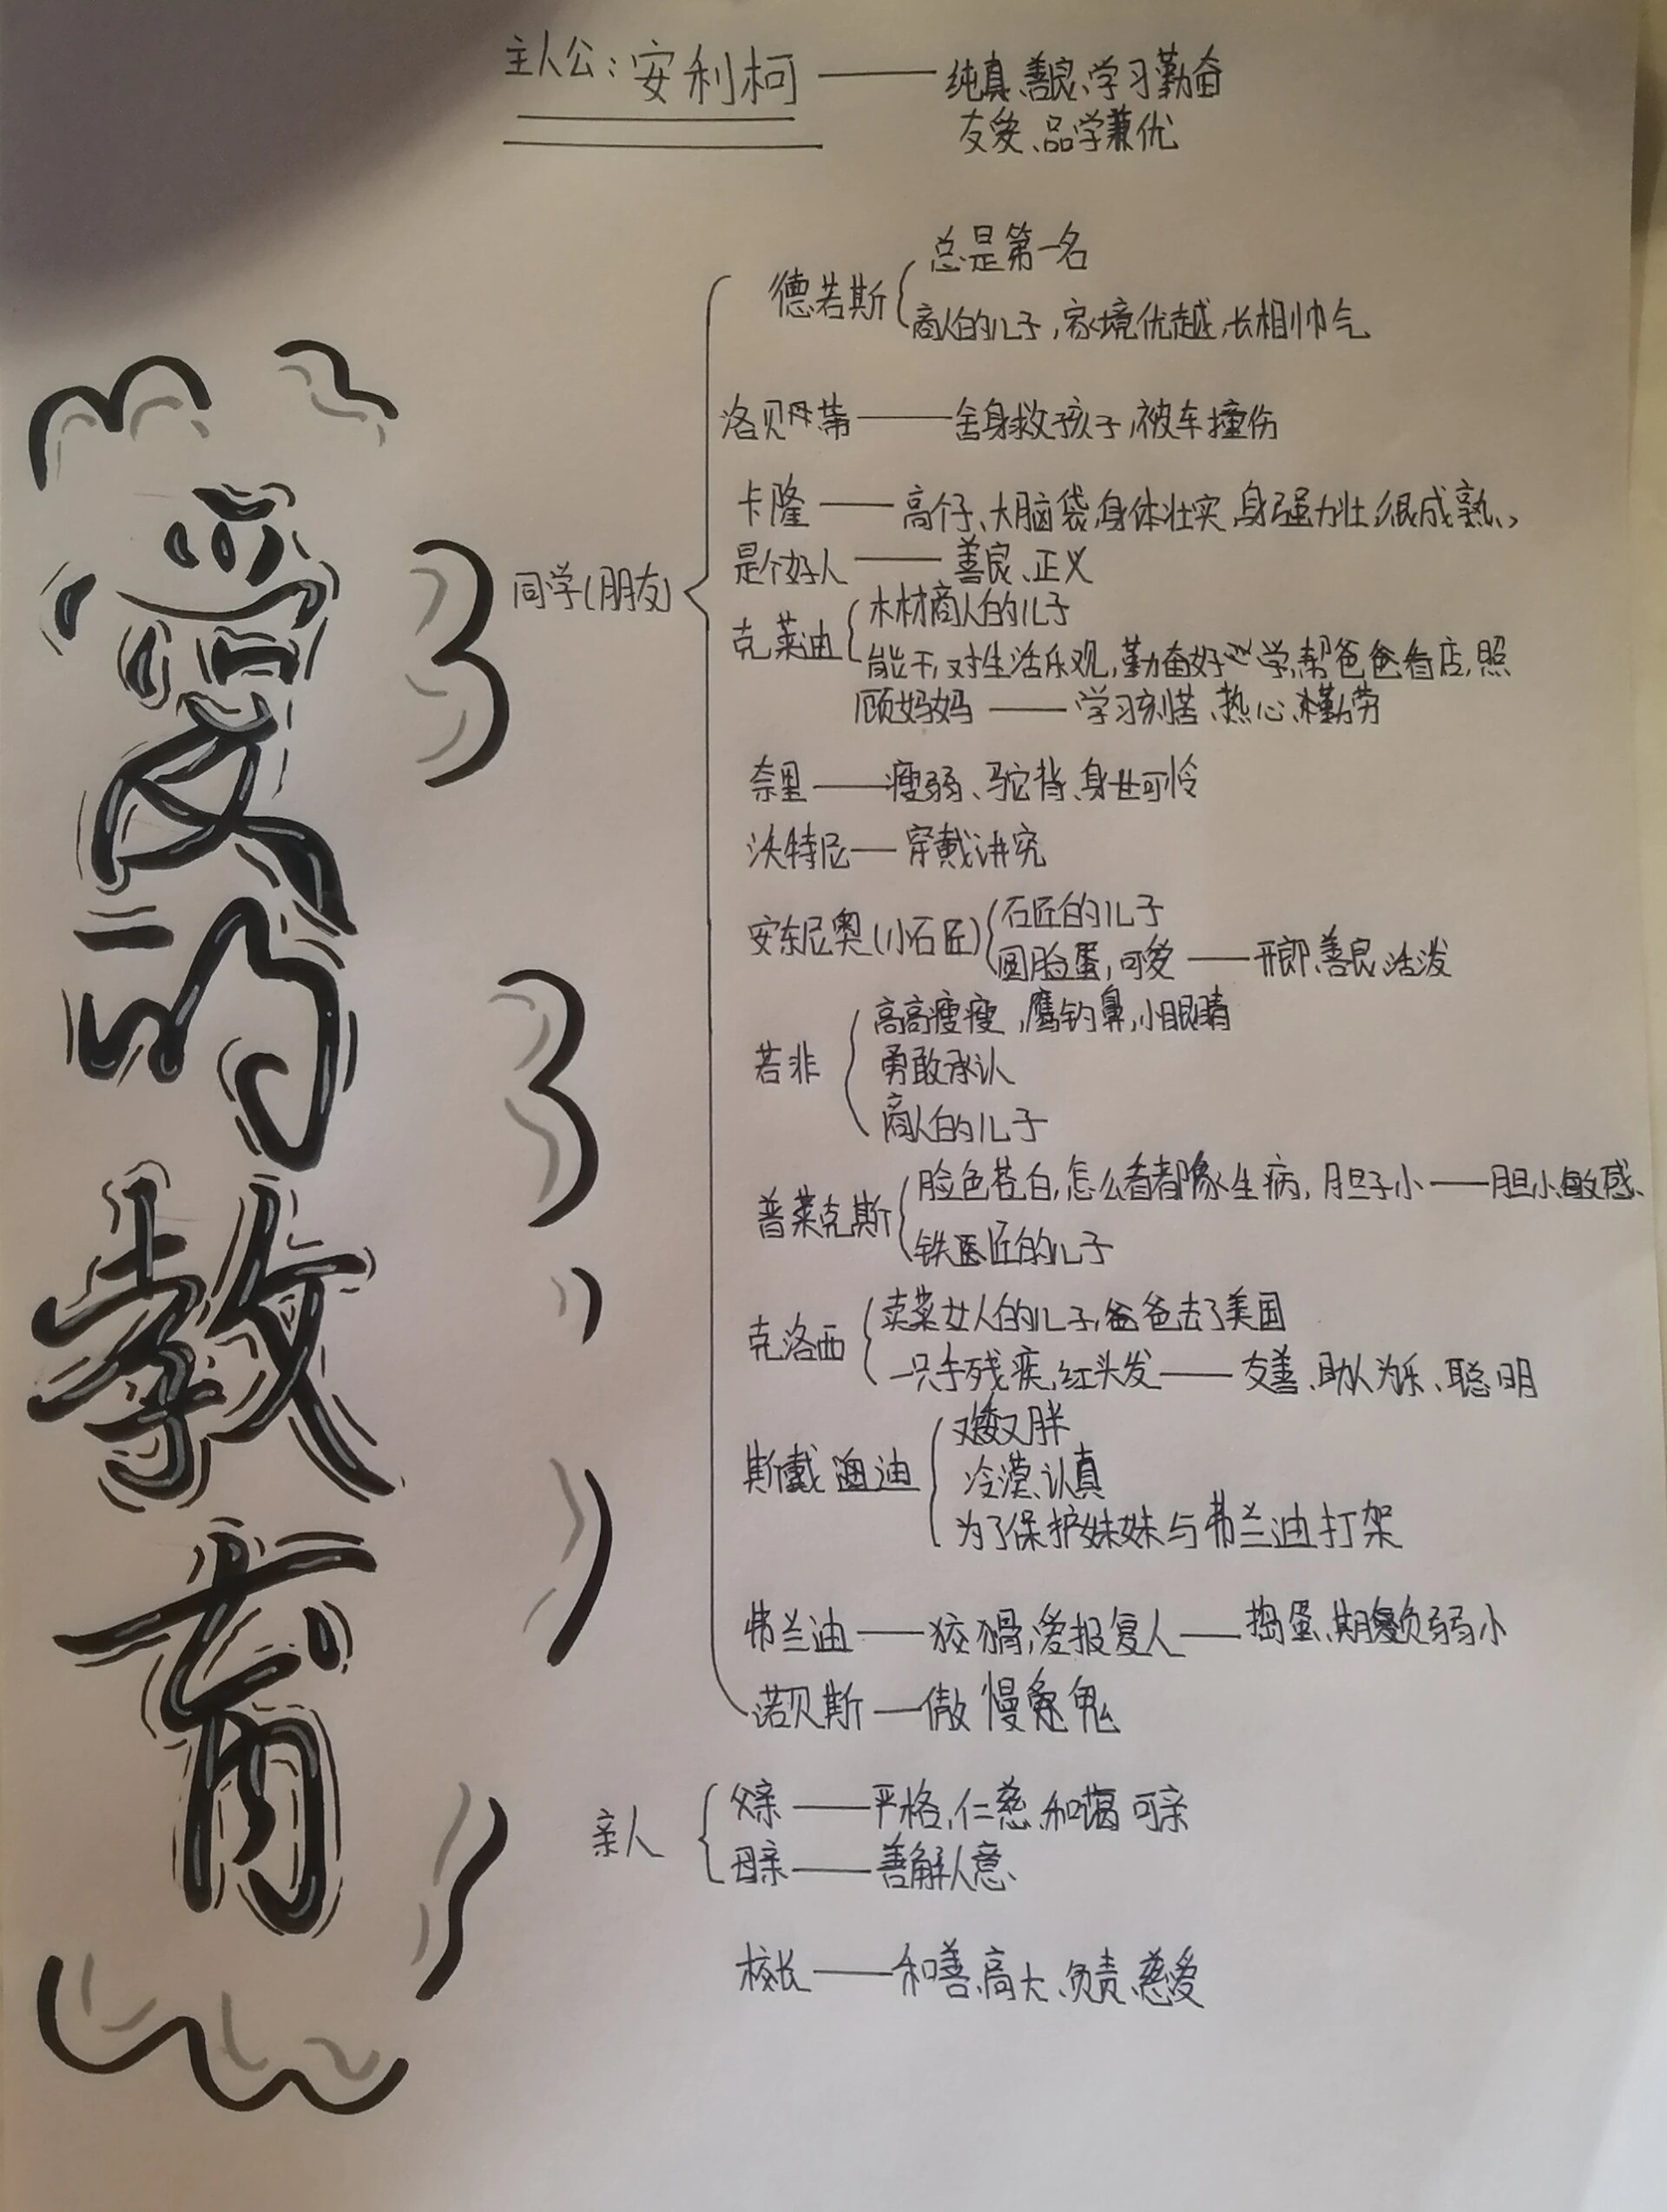 爱的教育
主人公：安利柯——纯真、善良、学习勤奋
友爱、品学兼优
同学(朋友)
德若斯
总是第一名
商人的儿子，家境优越，长相帅气
洛贝母蒂——舍身救孩子，被车撞伤
卡隆——高个子、大脑袋，身体壮实，身强力壮，很成熟、
是个好人——善良、正义
克莱迪
木材商人的儿子
能干，对生活乐观，勤奋好学，帮爸爸看店，照
顾妈妈——学习刻苦、热心、勤劳
奈里——瘦弱、驼背、身世可怜
沃特尼——穿戴讲究
安东尼奥(小石匠)
石匠的儿子
圆脸蛋，可爱——开郎、善良、活泼
若非
高高瘦瘦，鹰钓鼻，小眼睛
勇敢承认
商人的儿子
普莱克斯
脸色苍白，怎么看都像生病，胆子小——胆小、敏感、
铁匠的儿子
克洛西
卖菜女人的儿子，爸爸去了美国
一只手残疾，红头发——友善、助人为乐、聪明
斯戴迪
又矮又胖
冷漠、认真
为了保护妹妹与弗兰迪打架
弗兰迪——狡猾，爱报复人——捣蛋、期负弱小
诺贝斯——傲慢鬼
亲人
父亲——严格，仁慈，和蔼可亲
母亲——善解人意、
校长——和善、高大、负责、慈爱